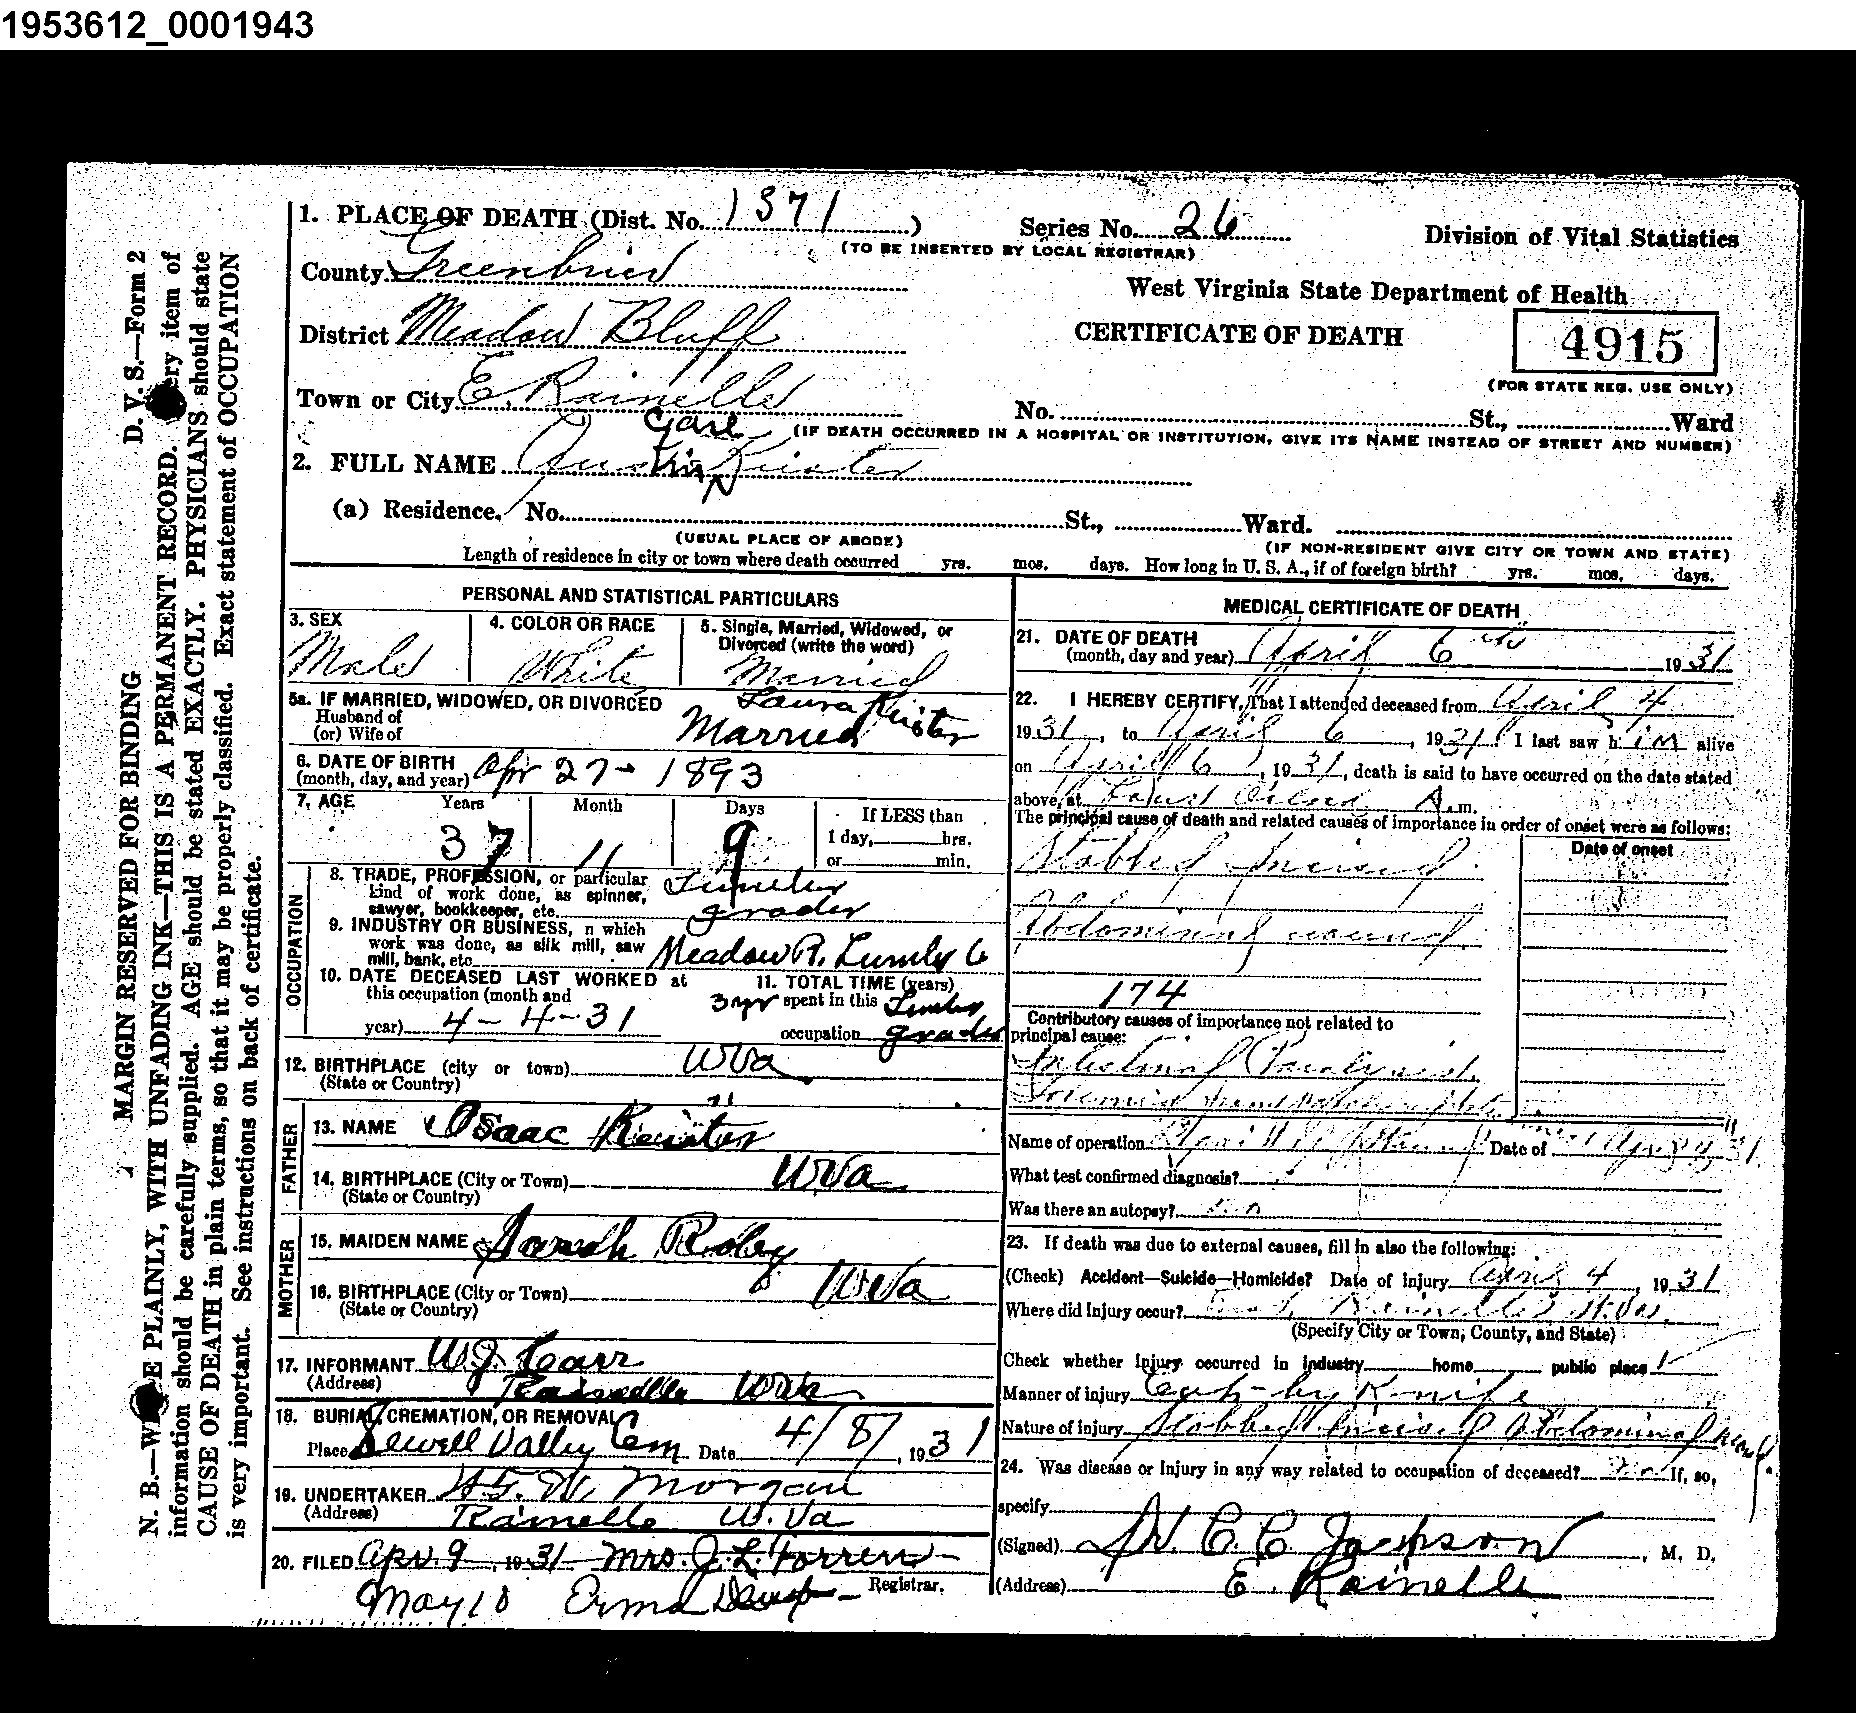 1953612_0001943
MARGIN RESERVED FOR BINDING D. V. S.—Form 2
N. B.—W E PLAINLY, WITH UNFADING INK—THIS IS A PERMANENT RECORD. ery item of
information should be carefully supplied. AGE should be stated EXACTLY. PHYSICIANS should state
CAUSE OF DEATH in plain terms, so that it may be properly classified. Exact statement of OCCUPATION
is very important. See instructions on back of certificate.
1. PLACE OF DEATH (Dist. No. 1371 ) Series No. 26 Division of Vital Statistics
(TO BE INSERTED BY LOCAL REGISTRAR)
County Greenbrier
West Virginia State Department of Health
District Meadow Bluff CERTIFICATE OF DEATH 4915
(FOR STATE REG. USE ONLY)
Town or City E. Rainelle No. St., Ward
(IF DEATH OCCURRED IN A HOSPITAL OR INSTITUTION, GIVE ITS NAME INSTEAD OF STREET AND NUMBER)
2. FULL NAME Keister
(a) Residence. No. St., Ward.
(USUAL PLACE OF ABODE) (IF NON-RESIDENT GIVE CITY OR TOWN AND STATE)
Length of residence in city or town where death occurred yrs. mos. days. How long in U. S. A., if of foreign birth? yrs. mos. days.
PERSONAL AND STATISTICAL PARTICULARS
3. SEX 4. COLOR OR RACE 5. Single, Married, Widowed, or
Divorced (write the word)
Male White Married
5a. IF MARRIED, WIDOWED, OR DIVORCED Laura Keister
Husband of
(or) Wife of Married
6. DATE OF BIRTH
(month, day, and year) Apr 27 - 1893
7. AGE Years Month Days If LESS than
37 11 9 1 day, hrs.
or min.
OCCUPATION
8. TRADE, PROFESSION, or particular
kind of work done, as spinner,
sawyer, bookkeeper, etc. Lumber grader
9. INDUSTRY OR BUSINESS, n which
work was done, as silk mill, saw
mill, bank, etc. Meadow R. Lumber Co
10. DATE DECEASED LAST WORKED at
this occupation (month and
year) 4-4-31
11. TOTAL TIME (years)
3 yr spent in this Lumber
occupation grader
12. BIRTHPLACE (city or town) WVa
(State or Country)
FATHER
13. NAME Isaac Keister
14. BIRTHPLACE (City or Town) W.Va
(State or Country)
MOTHER
15. MAIDEN NAME Sarah
16. BIRTHPLACE (City or Town) W.Va
(State or Country)
17. INFORMANT W.J. Carr
(Address) Rainelle WVa
18. BURIAL, CREMATION, OR REMOVAL
Place Sewell Valley Cem Date 4/8/, 1931
19. UNDERTAKER Morgan
(Address) Rainelle W.Va
20. FILED Apr. 9, 1931 Mrs. J. L. Forren
Registrar.
May 10 Erma
MEDICAL CERTIFICATE OF DEATH
21. DATE OF DEATH
(month, day and year) April 6th 1931
22. I HEREBY CERTIFY, That I attended deceased from April 4
1931, to April 6, 1931. I last saw him alive
on April 6, 1931, death is said to have occurred on the date stated
above, at A.m.
The principal cause of death and related causes of importance in order of onset were as follows:
Date of onset
Stabbed incised
Abdominal wound
174
Contributory causes of importance not related to
principal cause:
Intestinal Paralysis
Name of operation Date of
What test confirmed diagnosis?
Was there an autopsy? no
23. If death was due to external causes, fill in also the following:
(Check) Accident—Suicide—Homicide? Date of injury April 4, 1931
Where did injury occur? East Rainelle W.Va.
(Specify City or Town, County, and State)
Check whether injury occurred in industry home public place
Manner of injury Cut by Knife
Nature of injury Stabbed incised Abdominal wound.
24. Was disease or injury in any way related to occupation of deceased? no If, so,
specify
(Signed) Dr. C. C. Jackson, M. D.
(Address) E. Rainelle